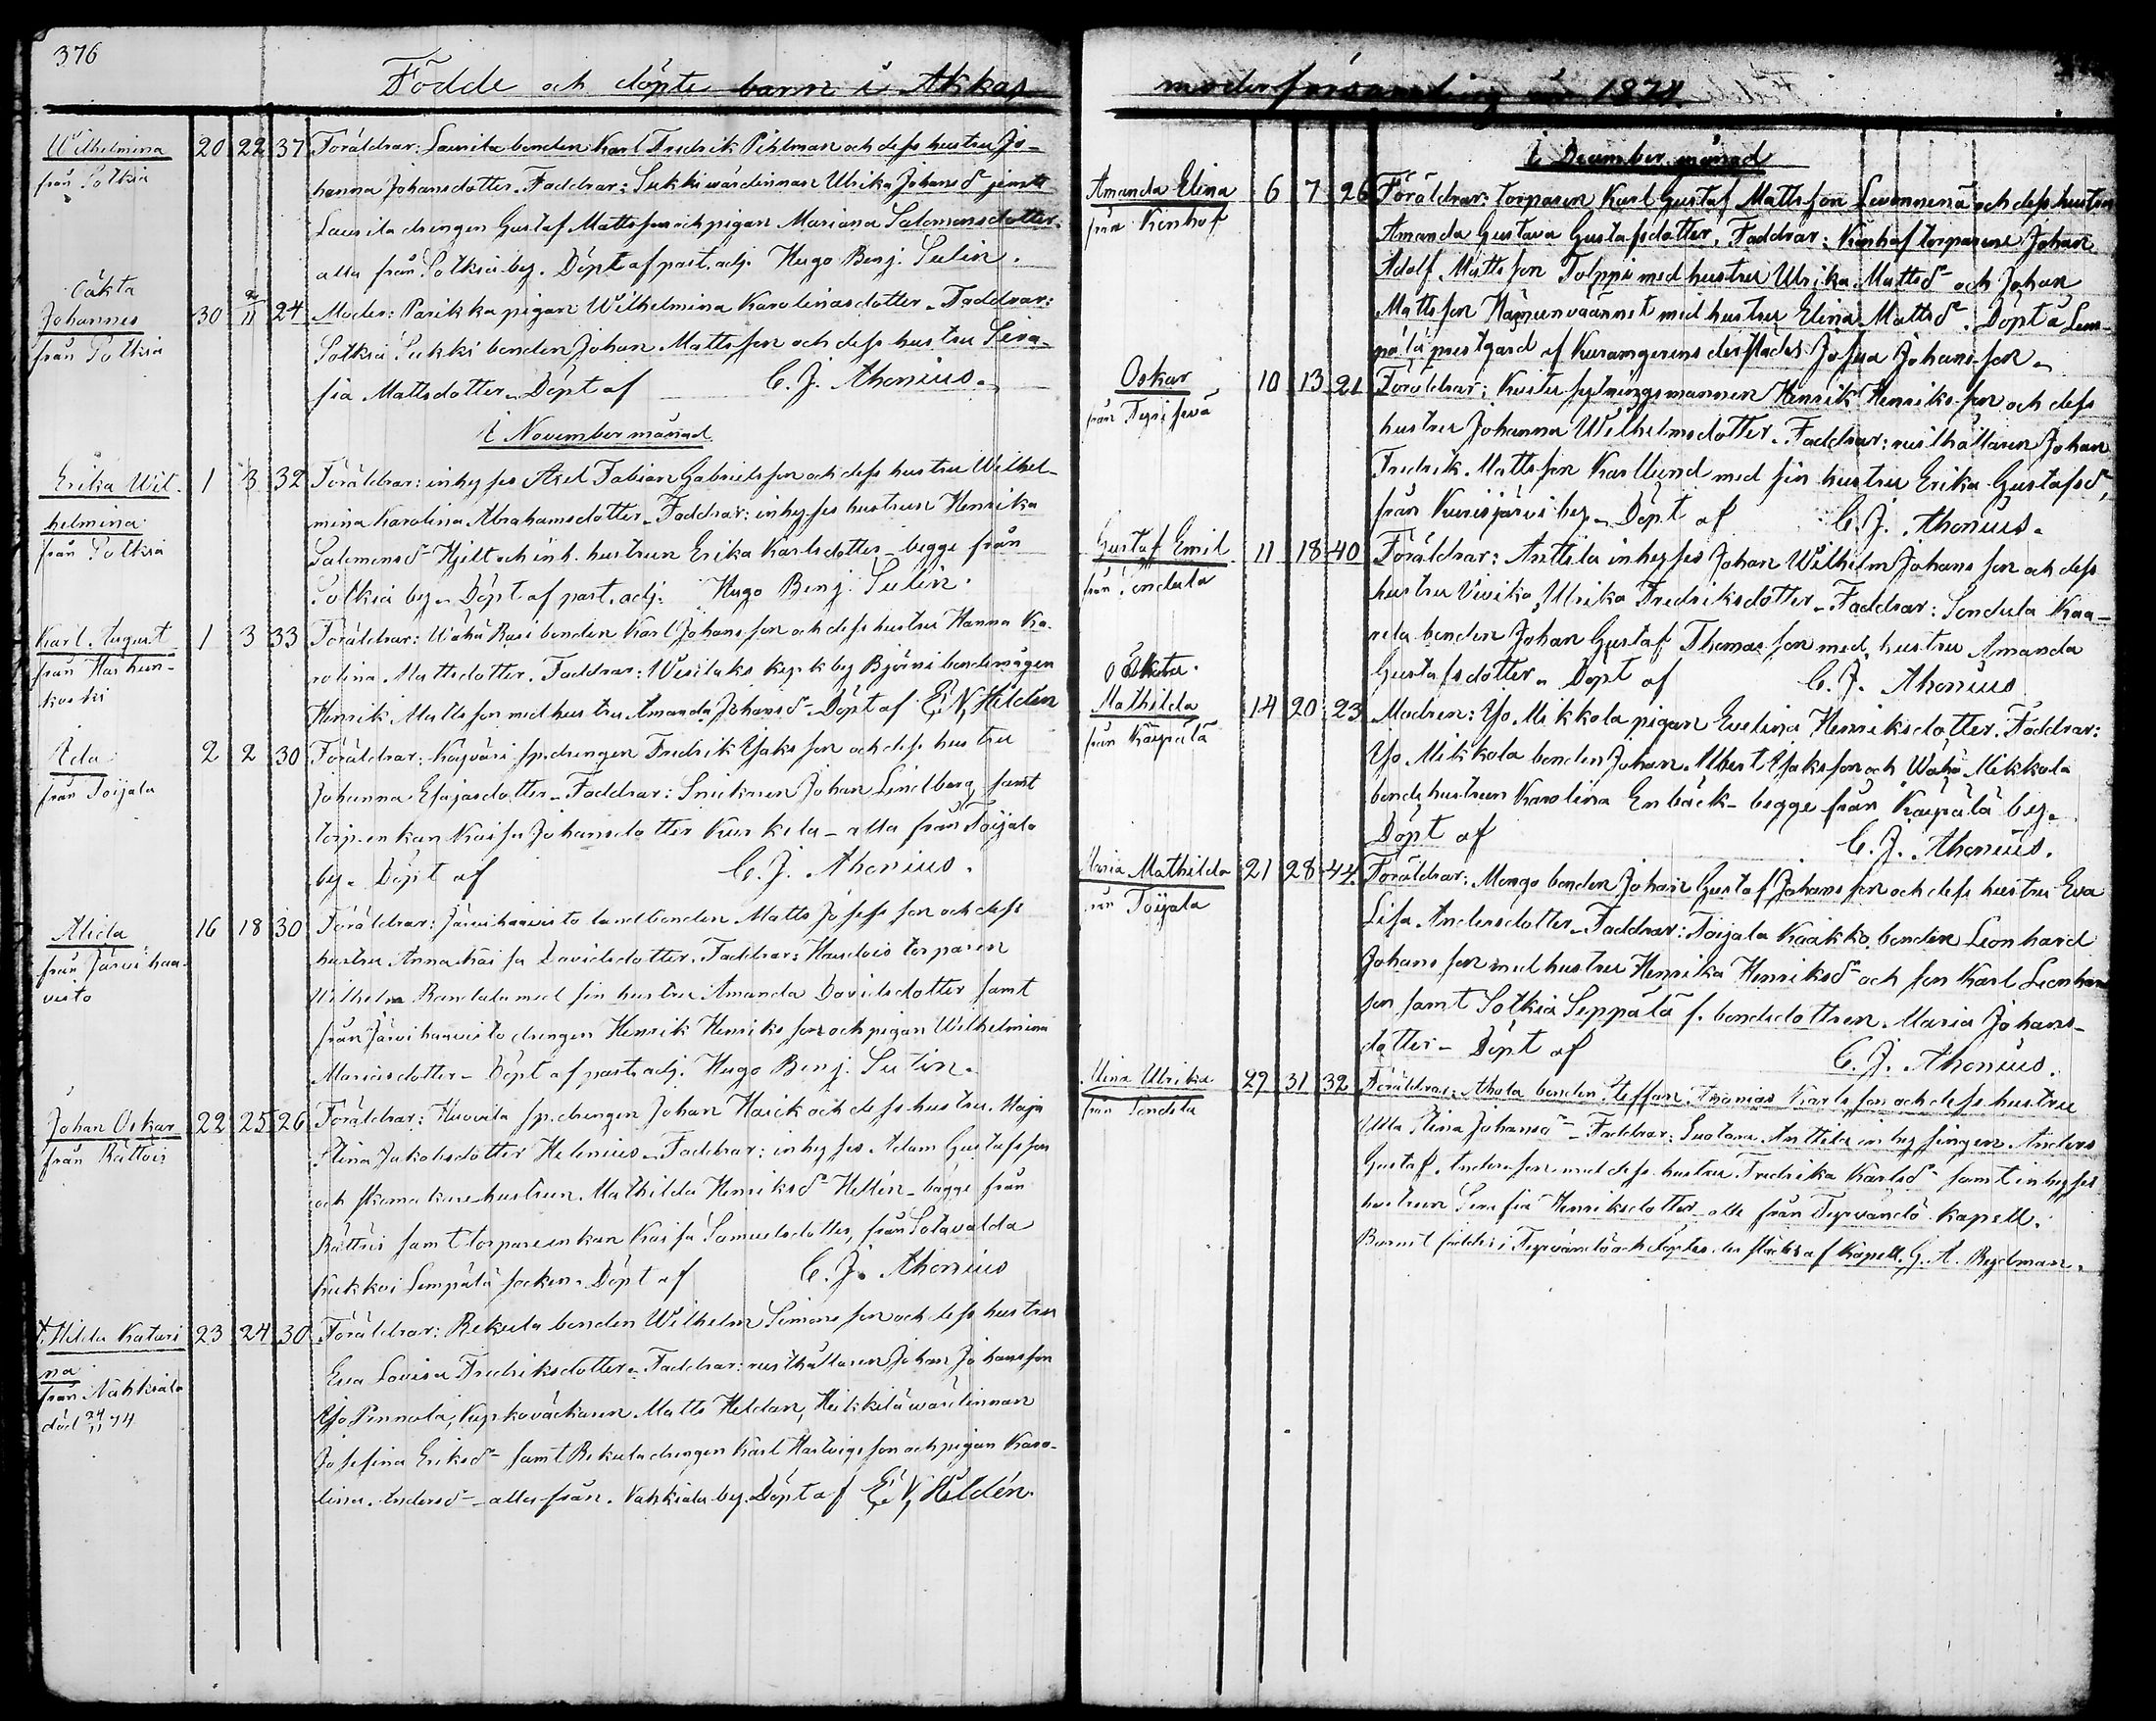 376
Födde och döpte barn i Akkas
Wilhelmina
från Sotkia
20 22 37 Föräldrar: Laurila bonden Karl Fredrik Pihlman och dess hustru Jo-
hanna Johansdotter. Faddrar: Sukki wärdinnan Ulrika Johansd:r jemte
Laurila drengen Gustaf Mattsson och pigan Mariana Salomonsdotter
alla från Sotkia by. Döpt af past. adj. Hugo Benj. Sulin.
Oäkta
Johannes
från Sotkia
30 2/11 24 Moder: Parikka pigan Wilhelmina Karolinasdotter. Faddrar:
Sotkia Sukki bonden Johan Mattsson och dess hustru Sera-
fia Mattsdotter. Döpt af C. J. Ahonius.
I November månad
Erika Wil-
helmina
från Sotkia
1 3 32 Föräldrar: inhyses Axel Fabian Gabrielsson och dess hustru Wilhel-
mina Karolina Abrahamsdotter. Faddrar: inhyses hustrun Henrika
Salomonsd:r Hjelt och inh. hustrun Erika Karlsdotter - begge från
Sotkia by. Döpt af past. adj. Hugo Benj. Sulin.
Karl August
från Harhun-
koski
1 3 33 Föräldrar: Wähä Rasi bonden Karl Johansson och dess hustru Hanna Ka-
rolina Mattsdotter. Faddrar: Wesilaks Kyrkby Björni bondemågen
Henrik Mattsson med hustru Amanda Johansd:r Döpt af E. V. Heldén
Ida
från Toijala
2 2 30 Föräldrar: sp. drengen Fredrik Isaksson och dess hustru
Johanna Esajasdotter. Faddrar: Snickaren Johan Lindberg samt
torp. enkan Kaisa Johansdotter Kurkela - alla från Toijala
by. Döpt af C. J. Ahonius.
Alida
från Järvihaa-
visto
16 18 30 Föräldrar: Järvihaavisto landbonden Matts Josefsson och dess
hustru Anna Kaisa Davidsdotter. Faddrar: torparen
Wilhelm Randala med sin hustru Amanda Davidsdotter samt
från Järvihaavisto drengen Henrik Henriksson och pigan Wilhelmina
Mariasdotter - Döpt af past. adj. Hugo Benj. Sulin.
Johan Oskar
från Rättöis
22 25 26 Föräldrar: Huovila sp. drengen Johan och dess hustru Maja
Stina Jakobsdotter Helenius. Faddrar: inhyses Adam Gustafsson
och skomakare hustrun Mathilda Henriksd:r Hellén - bägge från
Rättöis samt torpareenkan Kaisa Samuelsdotter från Sotavalda
Kukkoi Lempälä socken. Döpt af C. J. Ahonius
Hilda Katari
na
från Nahkiala
död 24/11 74
23 24 30 Föräldrar: Rekula bonden Wilhelm Simonsson och dess hustru
Eva Lovisa Fredriksdotter. Faddrar: rusthållaren Johan Johansson
Yso Pennola, Kyrkoväckaren Matts Heldan, Heikkilä wärdinnan
Josefina Eriksd:r samt Rekula drengen Karl Hartvigsson och pigan Karo-
lina Andersd:r - alla från Nahkiala by. Döpt af E. V. Heldén.
moderförsamling år 1874
I December månad
Amanda Elina
från Kenhof
6 7 26 Föräldrar: torparen Karl Gustaf Mattsson och dess hustru
Amanda Gustava Gustafsdotter. Faddrar: Kenhof torparene Johan
Adolf Mattsson Tolppi med hustru Ulrika Mattsd:r och Johan
Mattsson med hustru Elina Mattsd:r. Döpt å Lem-
pälä prestgard af Josua Johansson.
Oskar
från
10 13 21 Föräldrar: Henrik Henriksson och dess
hustru Johanna Wilhelmsdotter. Faddrar: rusthållaren Johan
Fredrik Mattsson Karllund med sin hustru Erika Gustafsd:r
från Kurisjärvi by. Döpt af C. J. Ahonius.
Gustaf Emil
från Sondula
11 18 40 Föräldrar: Anttila inhyses Johan Wilhelm Johansson och dess
hustru Vivika Ulrika Fredriksdotter. Faddrar: Sondula Kaa-
rela bonden Johan Gustaf Thomasson med hustru Amanda
Gustafsdotter. Döpt af C. J. Ahonius
Oäkta.
Mathilda
från Kaipälä
14 20 23 Modren: Yso Mikkola pigan Evelina Henriksdotter. Faddrar:
Yso Mikkola bonden Johan Albert Isaksson och Wähä Mikkola
bondehustrun Karolina Enbäck - begge från Kaipälä by.
Döpt af C. J. Ahonius.
Maria Mathilda
från Toijala
21 28 44 Föräldrar: Mongo bonden Johan Gustaf Johansson och dess hustru Eva
Lisa Andersdotter. Faddrar: Toijala Kaakko bonden Leonhard
Johansson med hustru Henrika Henriksd:r och son Karl Leonhard-
son samt Sotkia Seppälä f. bondedottren Maria Johans-
dotter - Döpt af C. J. Ahonius.
Mina Ulrika
från Sondula
29 31 32 Föräldrar: Ahola bonden Steffan Thomas Karlsson och dess hustru
Ulla Stina Johansd:r - Faddrar: Anttila inhysingen Anders
Gustaf Andersson med dess hustru Fredrika Karlsd:r samt inhyses
hustrun Serafia Henriksdotter - alla från Tyrväntö Kapell.
Barnet föddes i Tyrväntö och döptes derstädes af Kapell. G. A. Regelman.